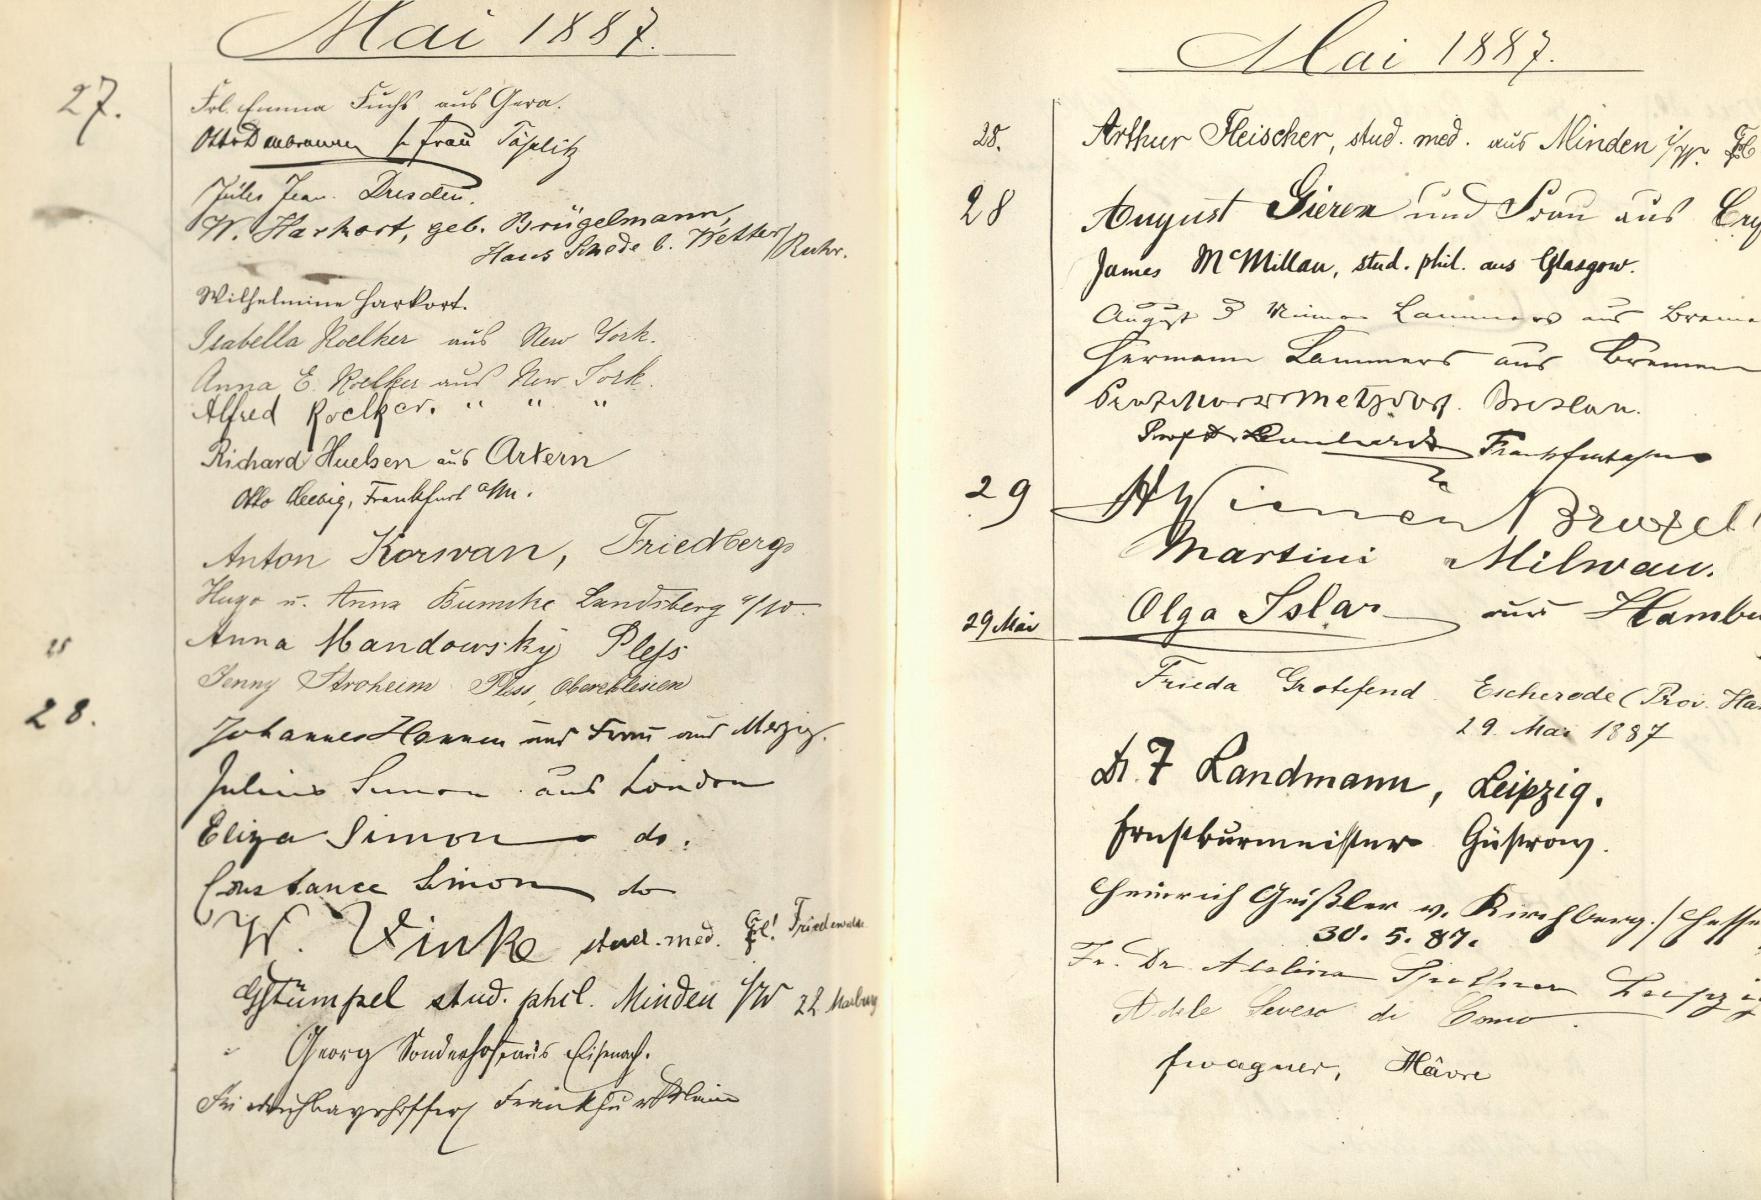 Mai 1887.
27.
Frl. Emma Fuchs aus Gera.
Otto & Frau Töplitz
Jules Jean. Dresden.
W. Harkort, geb. Brügelmann,
Haus Schede b. Wetter/Ruhr.
Wilhelmine Harkort.
Isabella Roelker aus New York.
Anna E. Roelker aus New York.
Alfred Roelker. " " "
Richard Huelsen aus Artern
Otto Frankfurt a/M.
Anton Korwan, Friedberg
Hugo u. Anna Landsberg a/W.
Anna Mandowsky Pless
Jenny Stroheim Pless, Oberschlesien
28.
Johannes und Frau aus Merzig.
Julius Simon aus London
Eliza Simon do.
Constance Simon do
W. Vinke stud. med.
G Stümpel stud. phil. Minden i/W
Georg Sonderhof aus Eisenach.
Friedrich Bayrhoffer Frankfurt Main
Mai 1887.
28.
Arthur Fleischer, stud. med. aus Minden i/W.
28
August Gieren und Frau aus
James McMillan, stud. phil. aus Glasgow.
August Lammers aus Breme
Hermann Lammers aus Bremen
Breslau.
Prof Dr
29
Wiener Bruxel
Martini Milwau.
29 Mai
Olga Islar aus Hambu
Frieda Grotefend Escherode (Prov. Han
29. Mai 1887
Dr. F Landmann, Leipzig.
Ernst Burmeister Güstrow.
Heinrich Geißler v. Kirchberg./Hesse
30. 5. 87.
Fr. Dr. Leipzig
Adele Seveso di Como.
Wagner, Hâvre